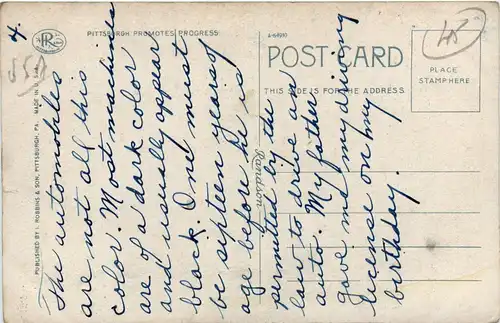 4.
PITTSBURGH PROMOTES PROGRESS
A-64910
POST CARD
THIS SIDE IS FOR THE ADDRESS
PLACE
STAMP HERE
45
PUBLISHED BY I. ROBBINS & SON, PITTSBURGH, PA. MADE IN U.S.A.
The automobiles
are not all this
color. Most machines
are of a dark color
and usually appear
black. One must
be sixteen years of
age before he is
permitted by the
law to drive an
auto. My father
gave me my driving
license on my
birthday.